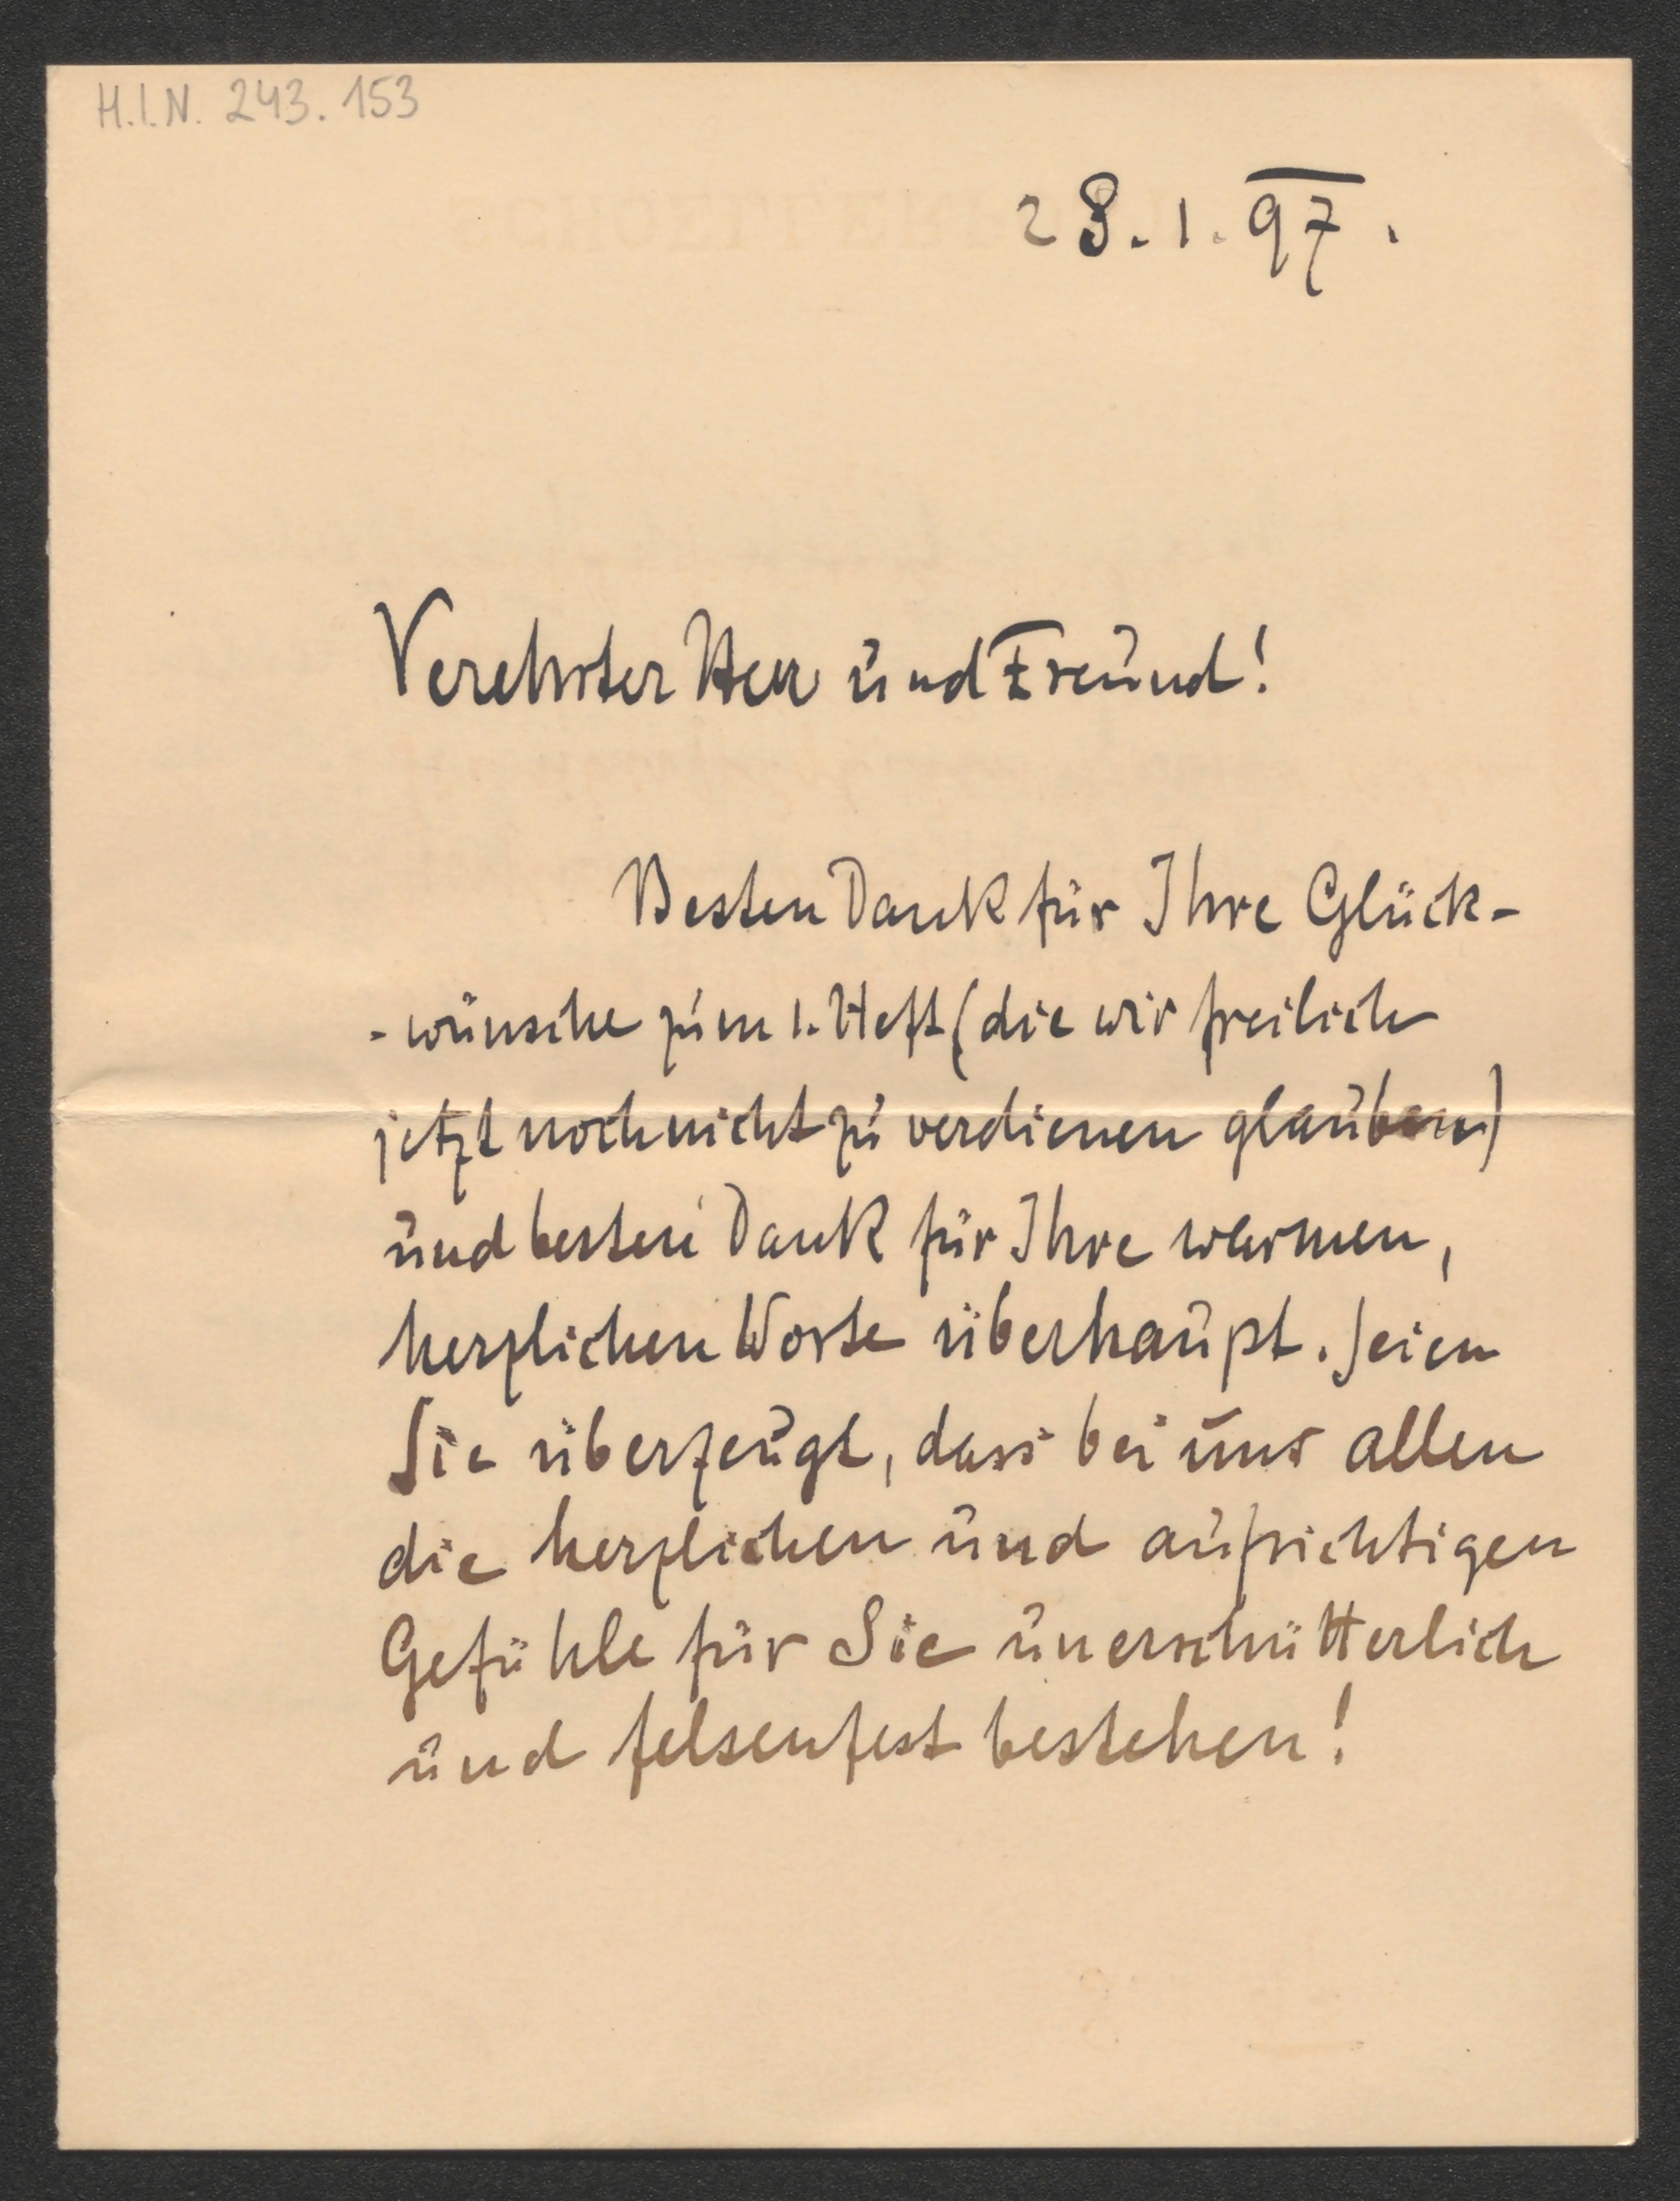 H.I.N. 243.153
28.1.97.
Verehrter Herr und Freund!
Besten Dank für Ihre Glück-
-wünsche zum 1. Heft (die wir freilich
jetzt noch nicht zu verdienen glauben)
und besten Dank für Ihre warmen,
herzlichen Worte überhaupt. Seien
Sie überzeugt, dass bei uns allen
die herzlichen und aufrichtigen
Gefühle für Sie unerschütterlich
und felsenfest bestehen!